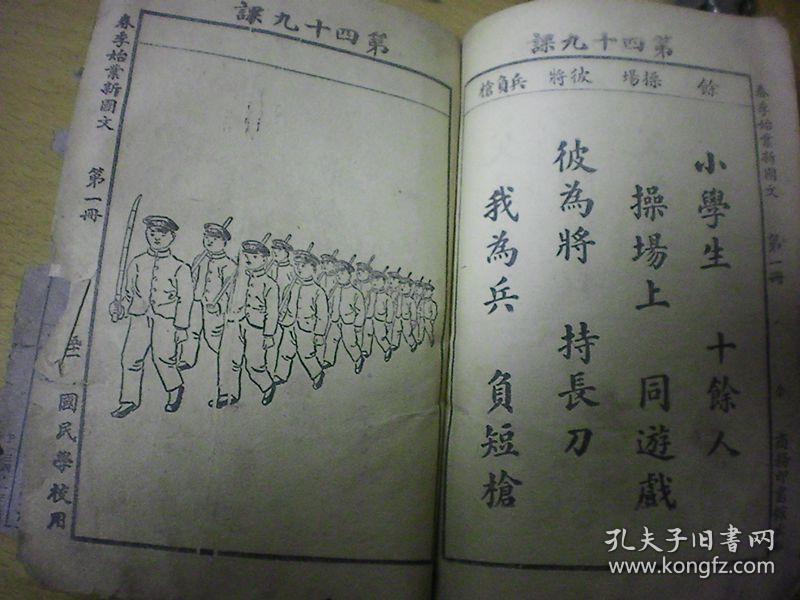 課九十四第
餘
操場
彼將
兵負槍
小學生 十餘人
操場上 同遊戲
彼為將 持長刀
我為兵 負短槍
春季始業新國文 第一冊
商務印書館
課九十四第
春季始業新國文 第一冊
國民學校用
孔夫子旧书网
www.kongfz.com